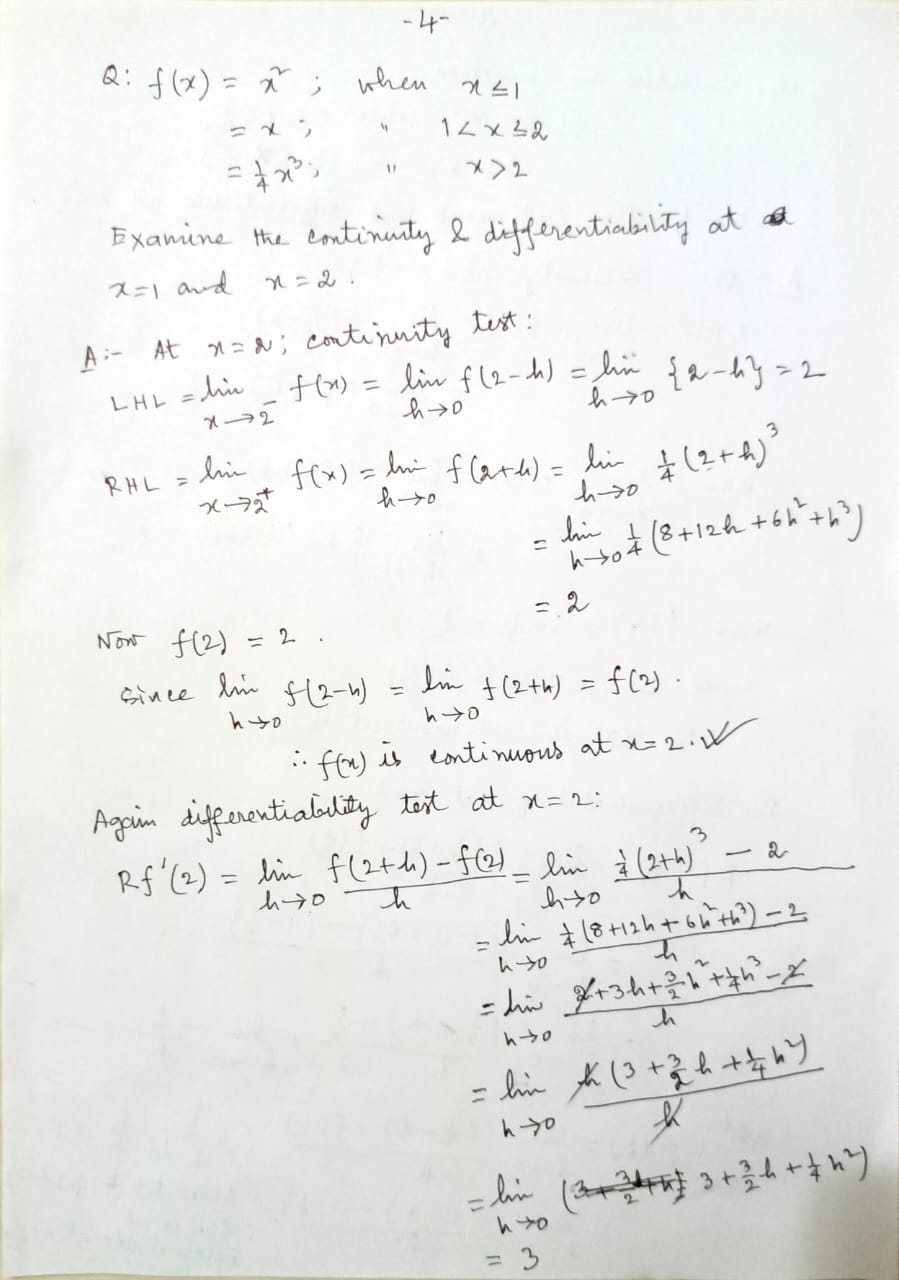 -4-
Q: f(x) = x² ; when x ≤ 1
= x ; " 1 < x ≤ 2
= 1/4 x³ ; " x > 2
Examine the continuity & differentiability at
x=1 and x = 2 .
A:- At x = 2 ; continuity test :
LHL = lim x→2⁻ f(x) = lim h→0 f(2-h) = lim h→0 {2-h} = 2
RHL = lim x→2⁺ f(x) = lim h→0 f(2+h) = lim h→0 1/4 (2+h)³
= lim h→0 1/4 (8+12h+6h²+h³)
= 2
Now f(2) = 2 .
Since lim h→0 f(2-h) = lim h→0 f(2+h) = f(2) .
∴ f(x) is continuous at x = 2 .
Again differentiability test at x = 2 :
Rf'(2) = lim h→0 (f(2+h) - f(2))/h = lim h→0 (1/4 (2+h)³ - 2)/h
= lim h→0 (1/4 (8+12h+6h²+h³) - 2)/h
= lim h→0 (2+3h+3/2 h²+1/4 h³-2)/h
= lim h→0 h(3+3/2 h+1/4 h²)/h
= lim h→0 ( 3+3/2 h+1/4 h²)
= 3